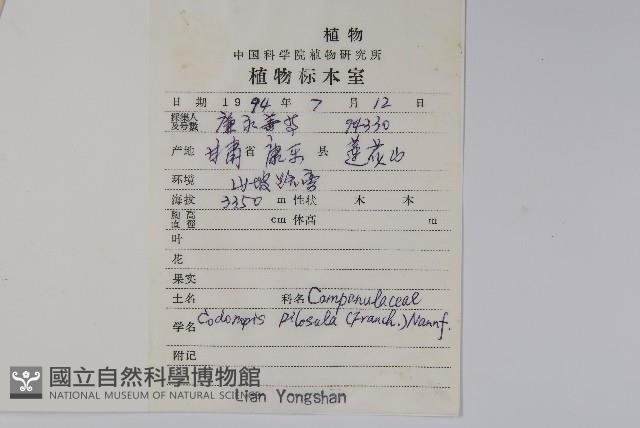 植物
中国科学院植物研究所
植物标本室
日期 1994 年 7 月 12 日
採集人及号数 廉永善等 94330
产地 甘肃 省 康乐 县 莲花山
环境 山坡
海拔 3350 m 性状 木 本
胸高直徑 cm 体高 m
叶
花
果实
土名 科名 Campanulaceae
学名 Codonopsis pilosula (Franch.) Nannf.
附记
Lian Yongshan
國立自然科學博物館
NATIONAL MUSEUM OF NATURAL SCIENCE